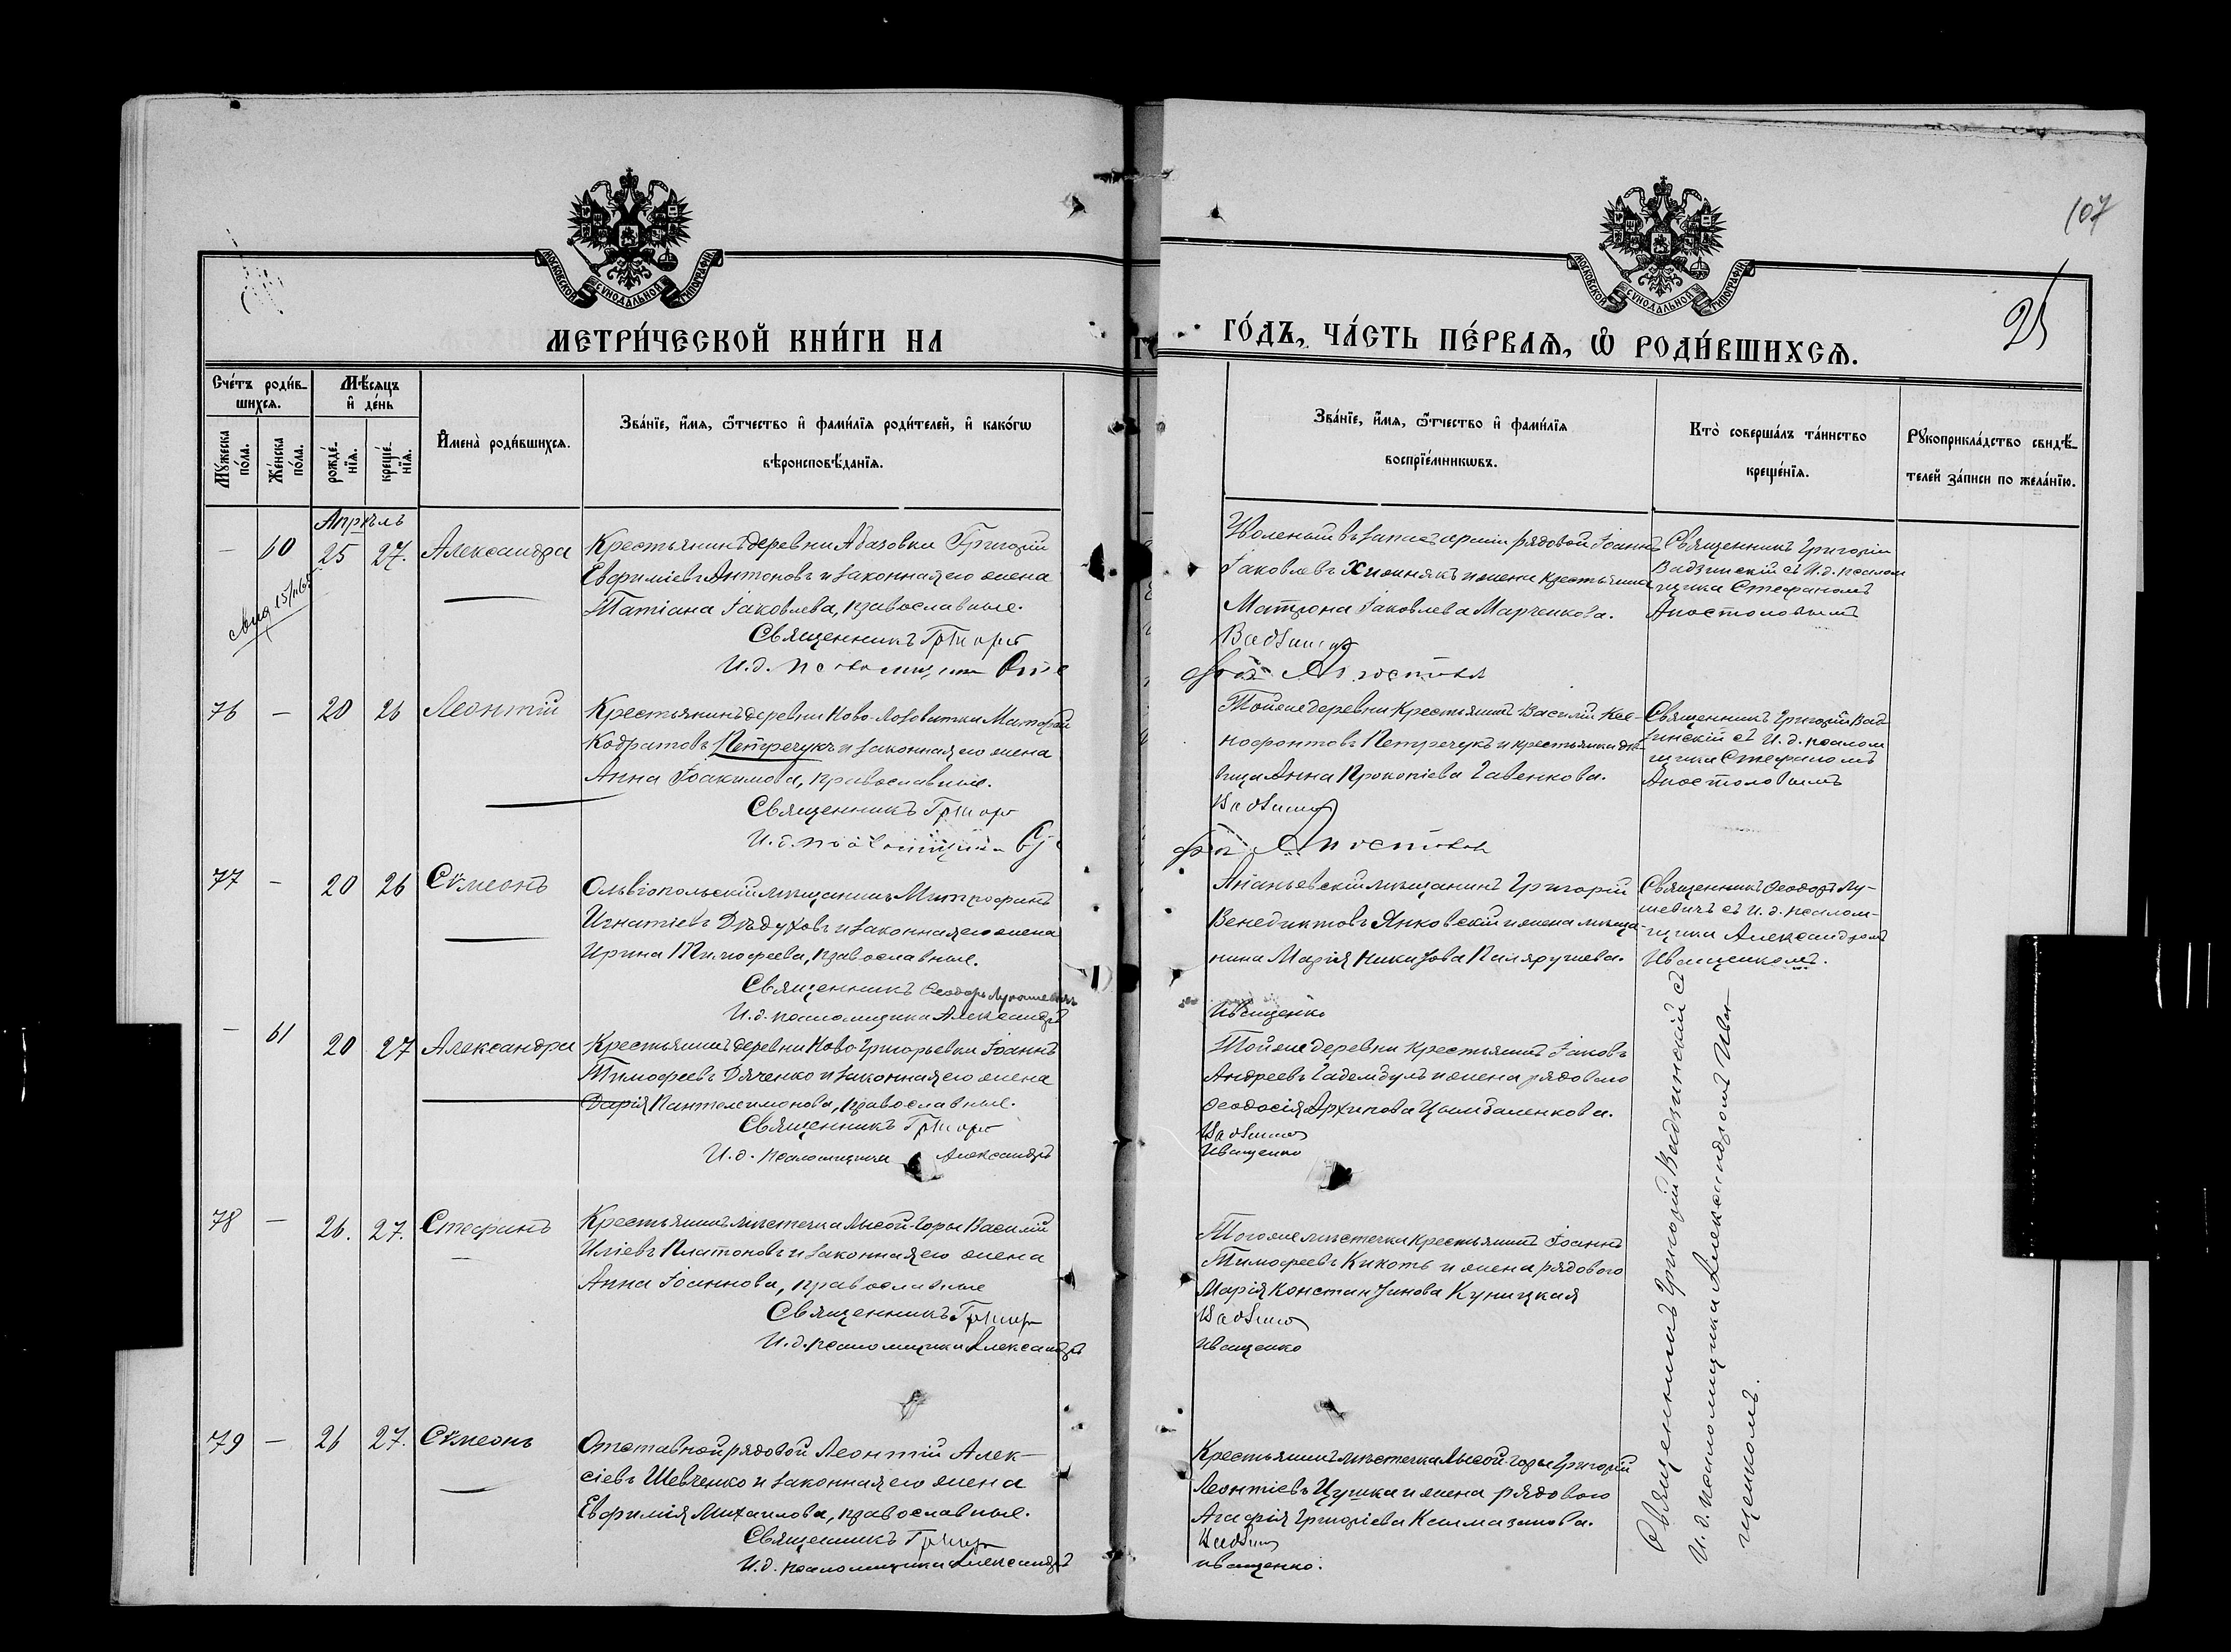 107
25
МОСКОВСКОЙ СѴНОДАЛЬНОЙ ТИПОГРАФІИ
МОСКОВСКОЙ СѴНОДАЛЬНОЙ ТИПОГРАФІИ
МЕТРИ́ЧЕСКОЙ КНИ́ГИ НА
ГО́ДЪ, ЧА́СТЬ ПЕ́РВАѦ, Ѽ РОДИ́ВШИХСѦ.
Сче́тъ роди́в-
шихсѧ.
Мѣ́сѧцъ
и҆ де́нь
Мꙋ́жеска
по́ла.
Же́нска
по́ла.
рожде́-
нїѧ.
креще́-
нїѧ.
И҆мена̀ роди́вшихсѧ.
Зва́нїе, и҆́мѧ, ѻ҆́тчество и҆ фами́лїѧ роди́телей, и҆ како́гѡ
вѣроисповѣ́данїѧ.
Зва́нїе, и҆́мѧ, ѻ҆́тчество и҆ фами́лїѧ
воспрїе́мникѡвъ.
Кто̀ соверша́лъ та́инство
креще́нїѧ.
Рꙋкоприкла́дство свидѣ́-
телей за́писи по жела́нїю.
Апрѣль
— 60 25 27. Александра
Крестьянинъ деревни Абазовки Григорій
Евфиміевъ Антоновъ и законная его жена
Татіана Іаковлева, православные.
Священникъ Григорій
И.д. псаломщика
Уволеный въ запасъ арміи рядовой Іоаннъ
Іаковлевъ Хижнякъ и жена крестьянина
Матрона Іаковлева Марченкова.
Вадзинскій
Апостоловъ
Священникъ Григорій
Вадзинскій съ И.д. псалом
щика Стефаномъ
Апостоловымъ
76 — 20 26 Леонтій
Крестьянинъ деревни Ново-Лозоватки Митрофанъ
Кодратовъ Петречукъ и законная его жена
Анна Іоакимова, православные.
Священникъ Григорій
И.д. псаломщика
Тойже деревни крестьянинъ Василій Ксе-
нофонтовъ Петречукъ и крестьянка дѣ-
вица Анна Прокопіева Гавенкова.
Вадзинскій
Апостоловъ
Священникъ Григорій Вад
зинскій съ И.д. псалом
щика Стефаномъ
Апостоловымъ
77 — 20 26 Сѵмеонъ
Ольвіопольскій мѣщанинъ Митрофанъ
Игнатіевъ Дѣдуховъ и законная его жена
Ирина Тимофеева, православные.
Священникъ Ѳеодоръ Лукашевичъ
И.д. псаломщика Александръ
Ананьевскій мѣщанинъ Григорій
Венедиктовъ Янковскій и жена мѣща-
нина Марія
Иващенко
Священникъ Ѳеодоръ Лу-
шевичъ съ И.д. псалом-
щика Александромъ
Иващенкомъ.
— 61 20 27 Александра
Крестьянинъ деревни Ново-Григорьевки Іоаннъ
Тимофеевъ Дяченко и законная его жена
Дарія Пантелеимонова, православные.
Священникъ Григорій
И.д. псаломщика Александръ
Тойже деревни крестьянинъ Іаковъ
Андреевъ и жена рядоваго
Ѳеодосія Архипова Цымбаленкова.
Вадзинскій
Иващенко
78 — 26. 27. Стефанъ
Крестьянинъ мѣстечка Лысой-Горы Василій
Иліевъ Платоновъ и законная его жена
Анна Іоаннова, православные
Священникъ Григорій
И.д. псаломщика Александръ
Тогоже мѣстечка крестьянинъ Іоаннъ
Тимофеевъ Кикоть и жена рядового
Марія Константинова Куницкая
Вадзинскій
Иващенко
79 — 26 27. Сѵмеонъ
Отставной рядовой Леонтій Алек-
сіевъ Шевченко и законная его жена
Евфимія Михаилова, православные.
Священникъ Григорій
И.д. псаломщика Александръ
Крестьянинъ мѣстечка Лысой-Горы Григорій
Леонтіевъ Цушка и жена рядового
Агафія Григоріева Калмазанова.
Вадзинскій
Иващенко.
Священникъ Григорій Вадзинскій съ
И.д. псаломщика Александромъ Ива-
щенкомъ.